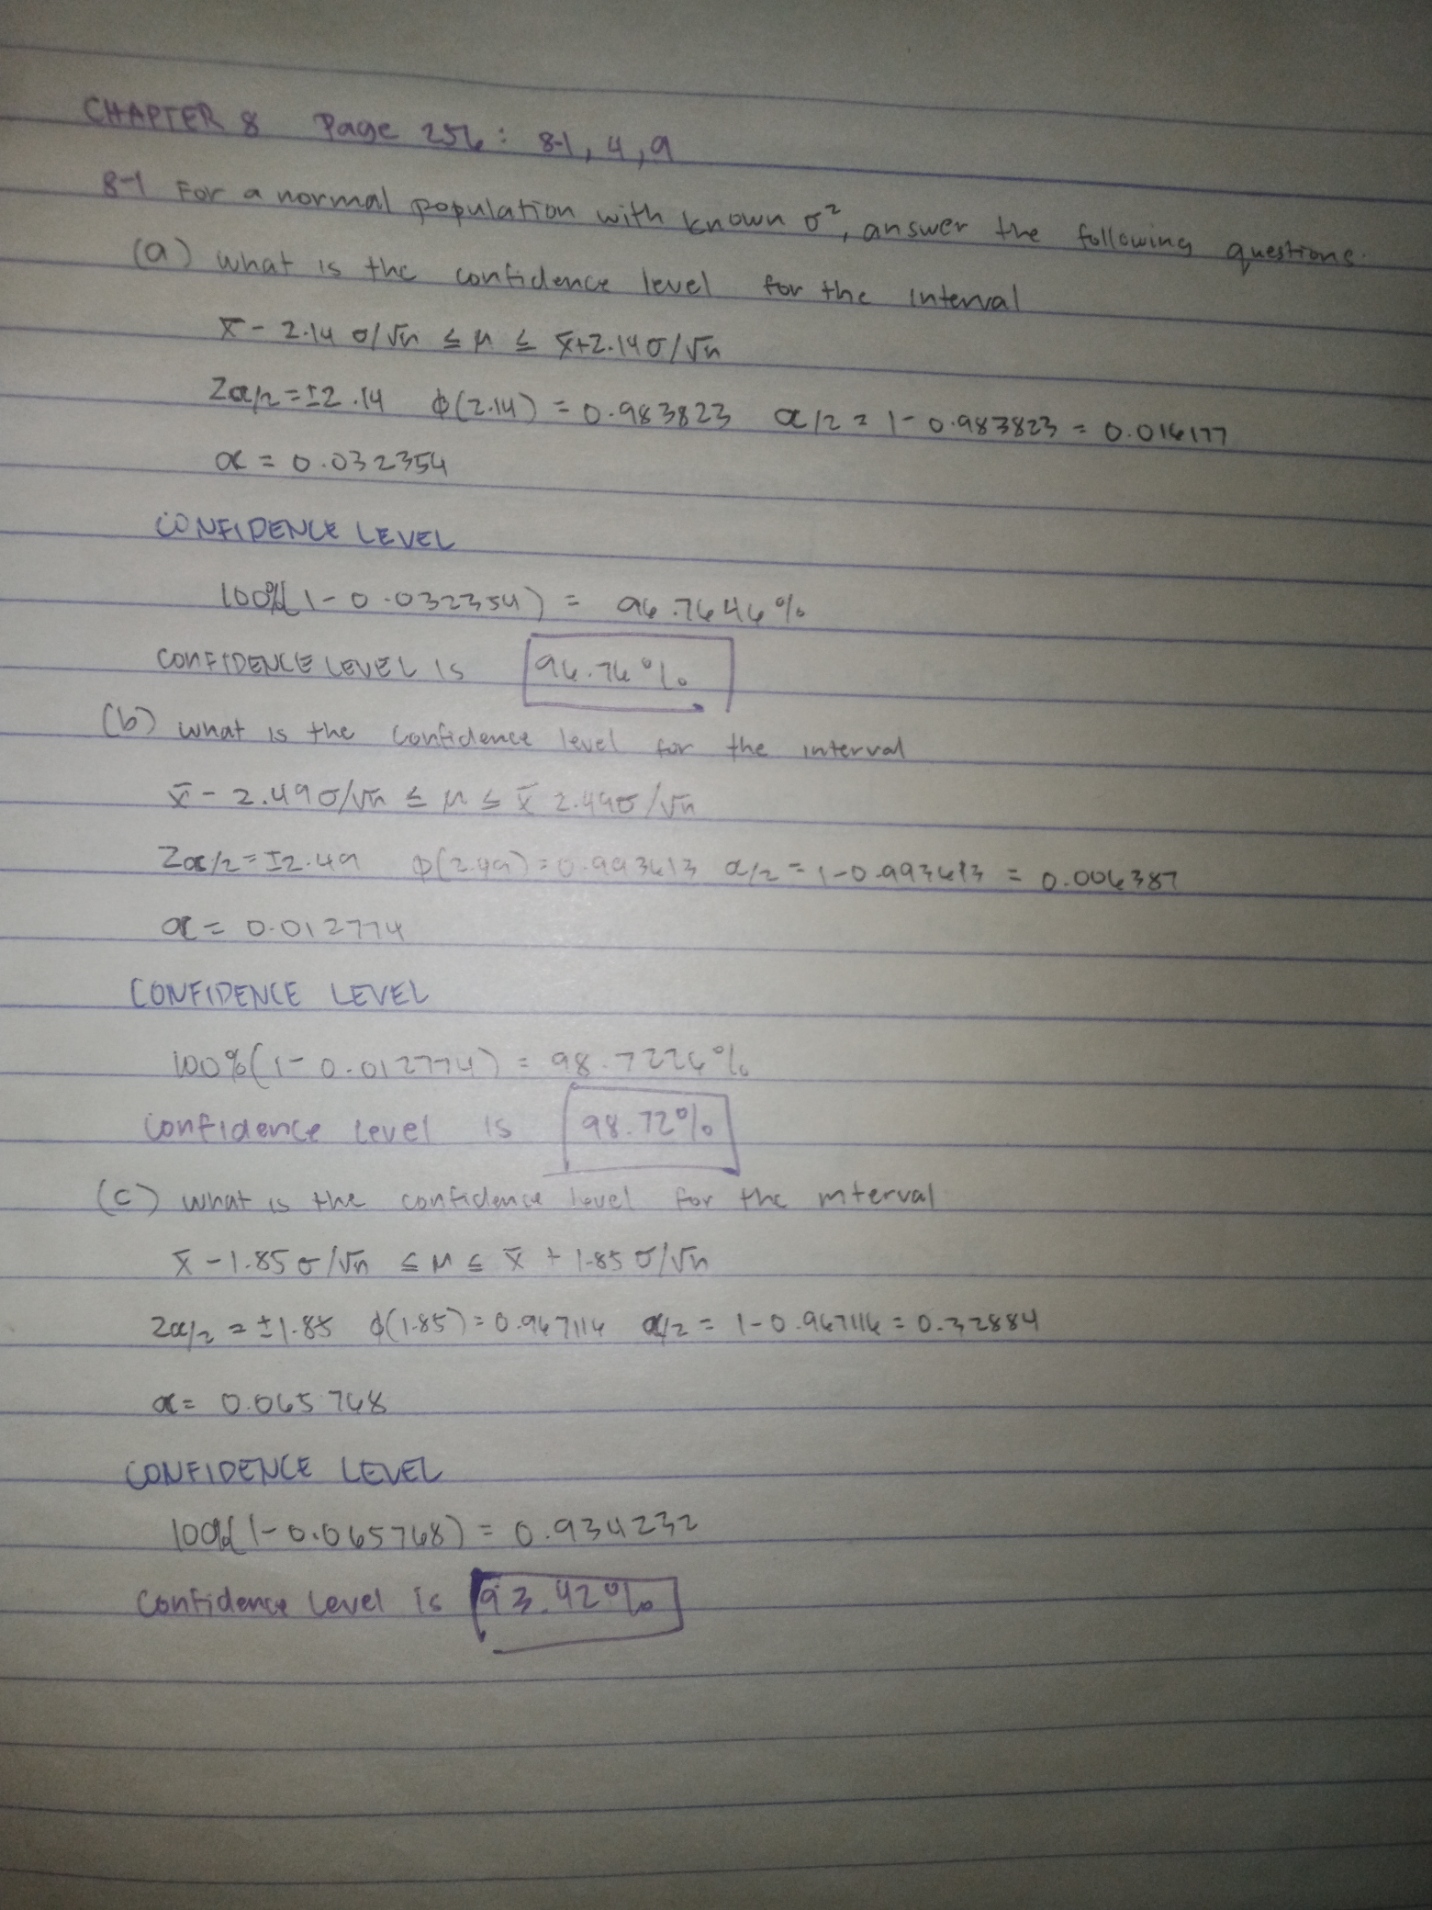 CHAPTER 8 Page 256: 8-1, 4, 9
8-1 For a normal population with known σ², answer the following questions.
(a) what is the confidence level for the interval
x̄ - 2.14 σ/√n ≤ μ ≤ x̄+2.14σ/√n
Zα/2 = ±2.14 ϕ(2.14) = 0.983823 α/2 = 1-0.983823 = 0.016177
α = 0.032354
CONFIDENCE LEVEL
100%(1-0.032354) = 96.7646%
CONFIDENCE LEVEL IS 96.76%
(b) what is the confidence level for the interval
x̄ - 2.49σ/√n ≤ μ ≤ x̄ 2.49σ/√n
Zα/2 = ±2.49 ϕ(2.49) = 0.993613 α/2 = 1-0.993613 = 0.006387
α = 0.012774
CONFIDENCE LEVEL
100%(1-0.012774) = 98.7226%
confidence level is 98.72%
(c) what is the confidence level for the interval
x̄ - 1.85σ/√n ≤ μ ≤ x̄ + 1.85σ/√n
Zα/2 = ±1.85 ϕ(1.85) = 0.967116 α/2 = 1-0.967116 = 0.32884
α = 0.065768
CONFIDENCE LEVEL
100%(1-0.065768) = 0.934232
Confidence Level is 93.42%